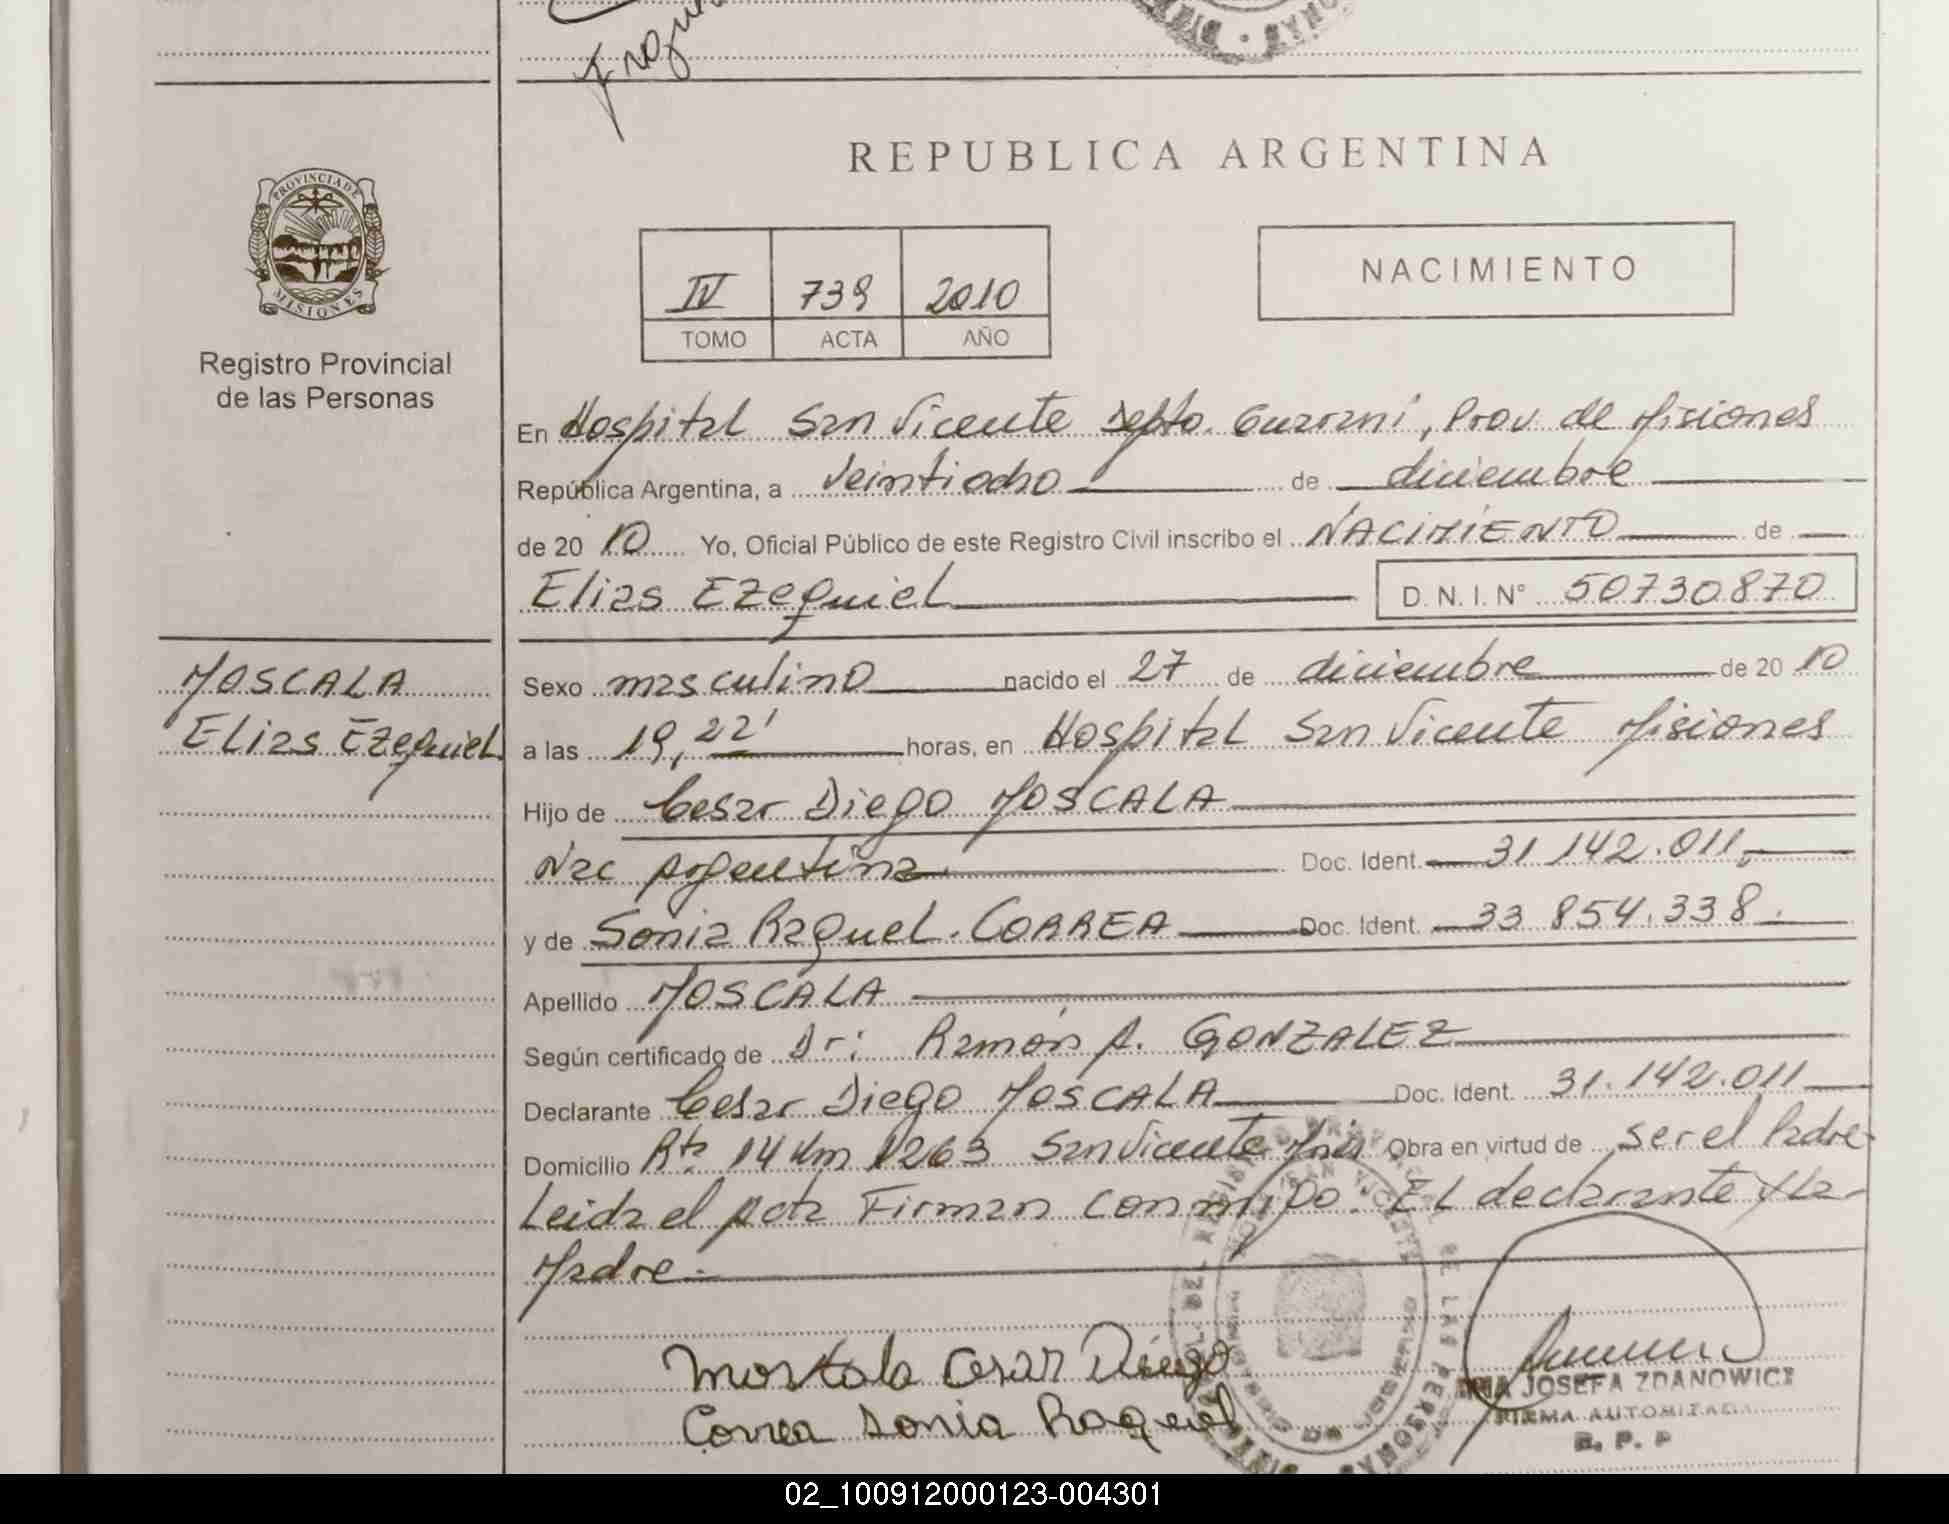 REPUBLICA ARGENTINA
PROVINCIA DE
MISIONES
Registro Provincial
de las Personas
IV 739 2010
TOMO ACTA AÑO
NACIMIENTO
En Hospital San Vicente Depto. Guaraní, Prov. de Misiones
República Argentina, a Veintiocho de diciembre
de 20 10 Yo, Oficial Público de este Registro Civil inscribo el NACIMIENTO de
Elias Ezequiel D. N. I. N° 50730870
MOSCALA
Elias Ezequiel
Sexo masculino nacido el 27 de diciembre de 20 10
a las 19,22' horas, en Hospital San Vicente Misiones
Hijo de Cesar Diego MOSCALA
Nac Argentina Doc. Ident. 31 142.011.
y de Sonia Raquel CORREA Doc. Ident. 33 854.338.
Apellido MOSCALA
Según certificado de Dr: Ramón A. GONZALEZ
Declarante Cesar Diego MOSCALA Doc. Ident. 31.142.011
Domicilio Rta 14 Km 1263 San Vicente Mnes Obra en virtud de ser el Padre
Leida el Acta Firman conmigo. El declarante y la
Madre.-
Moskala Cesar Diego
Correa Sonia Raquel
JOSEFA ZDANOWICZ
FIRMA AUTORIZADA
R. P. P
02_100912000123-004301